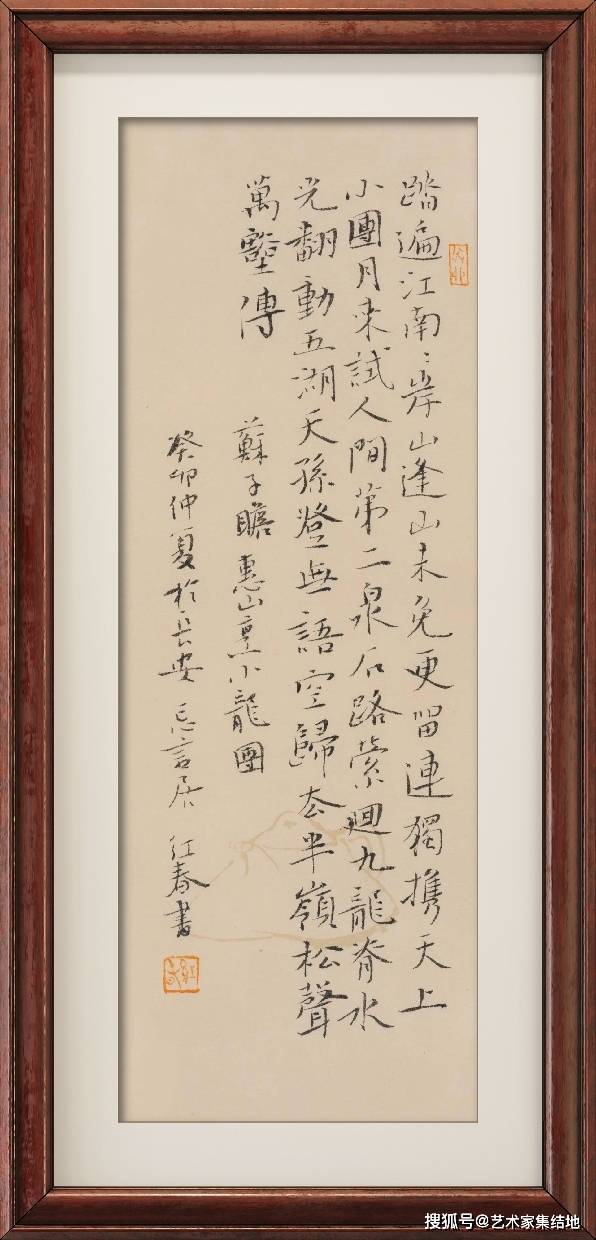 踏遍江南〻岸山逢山未免更留連獨携天上
小團月来試人間第二泉石路縈迴九龍脊水
光翻動五湖天孫登無語空歸去半嶺松聲
萬壑傳
蘇子瞻惠山烹小龍團
癸卯仲夏於長安忘言居 紅春書
癸卯
紅春
搜狐号@艺术家集结地